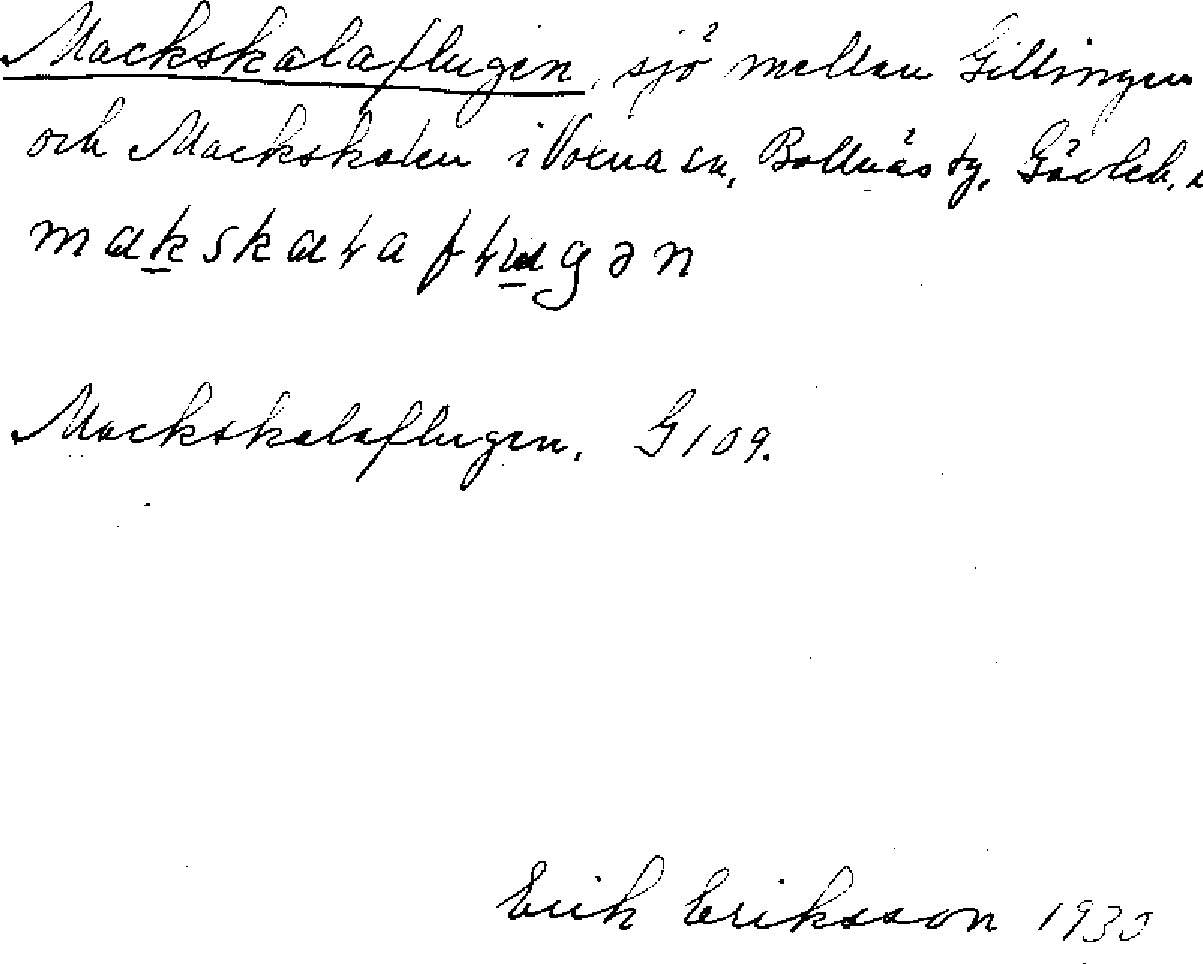 Mackskalaflugen, sjö mellan Gillingen
och Mackskalen i Voxna sn, Bollnäs tg, Gävleb.
makskaɽafɽugən
Mackskalaflugen. G 109.
Erik Eriksson 1930